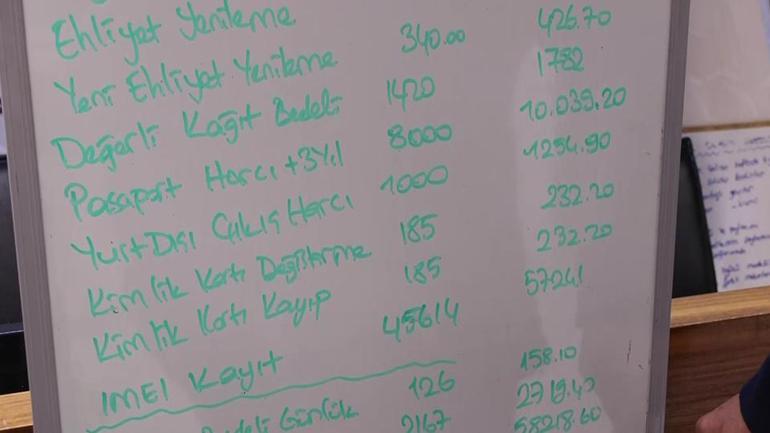 Ehliyet Yenileme
Yeni Ehliyet Yenileme 340.00 426.70
Değerli Kağıt Bedeli 1420 1782
Pasaport Harcı +3Yıl 8000 10.039.20
Yurt Dışı Çıkış Harcı 1000 1254.90
Kimlik Kartı Değiştirme 185 232.20
Kimlik Kartı Kayıp 185 232.20
IMEI Kayıt 45614 57241
Bedeli Günlük 126 158.10
2167 2719.40
58218.60